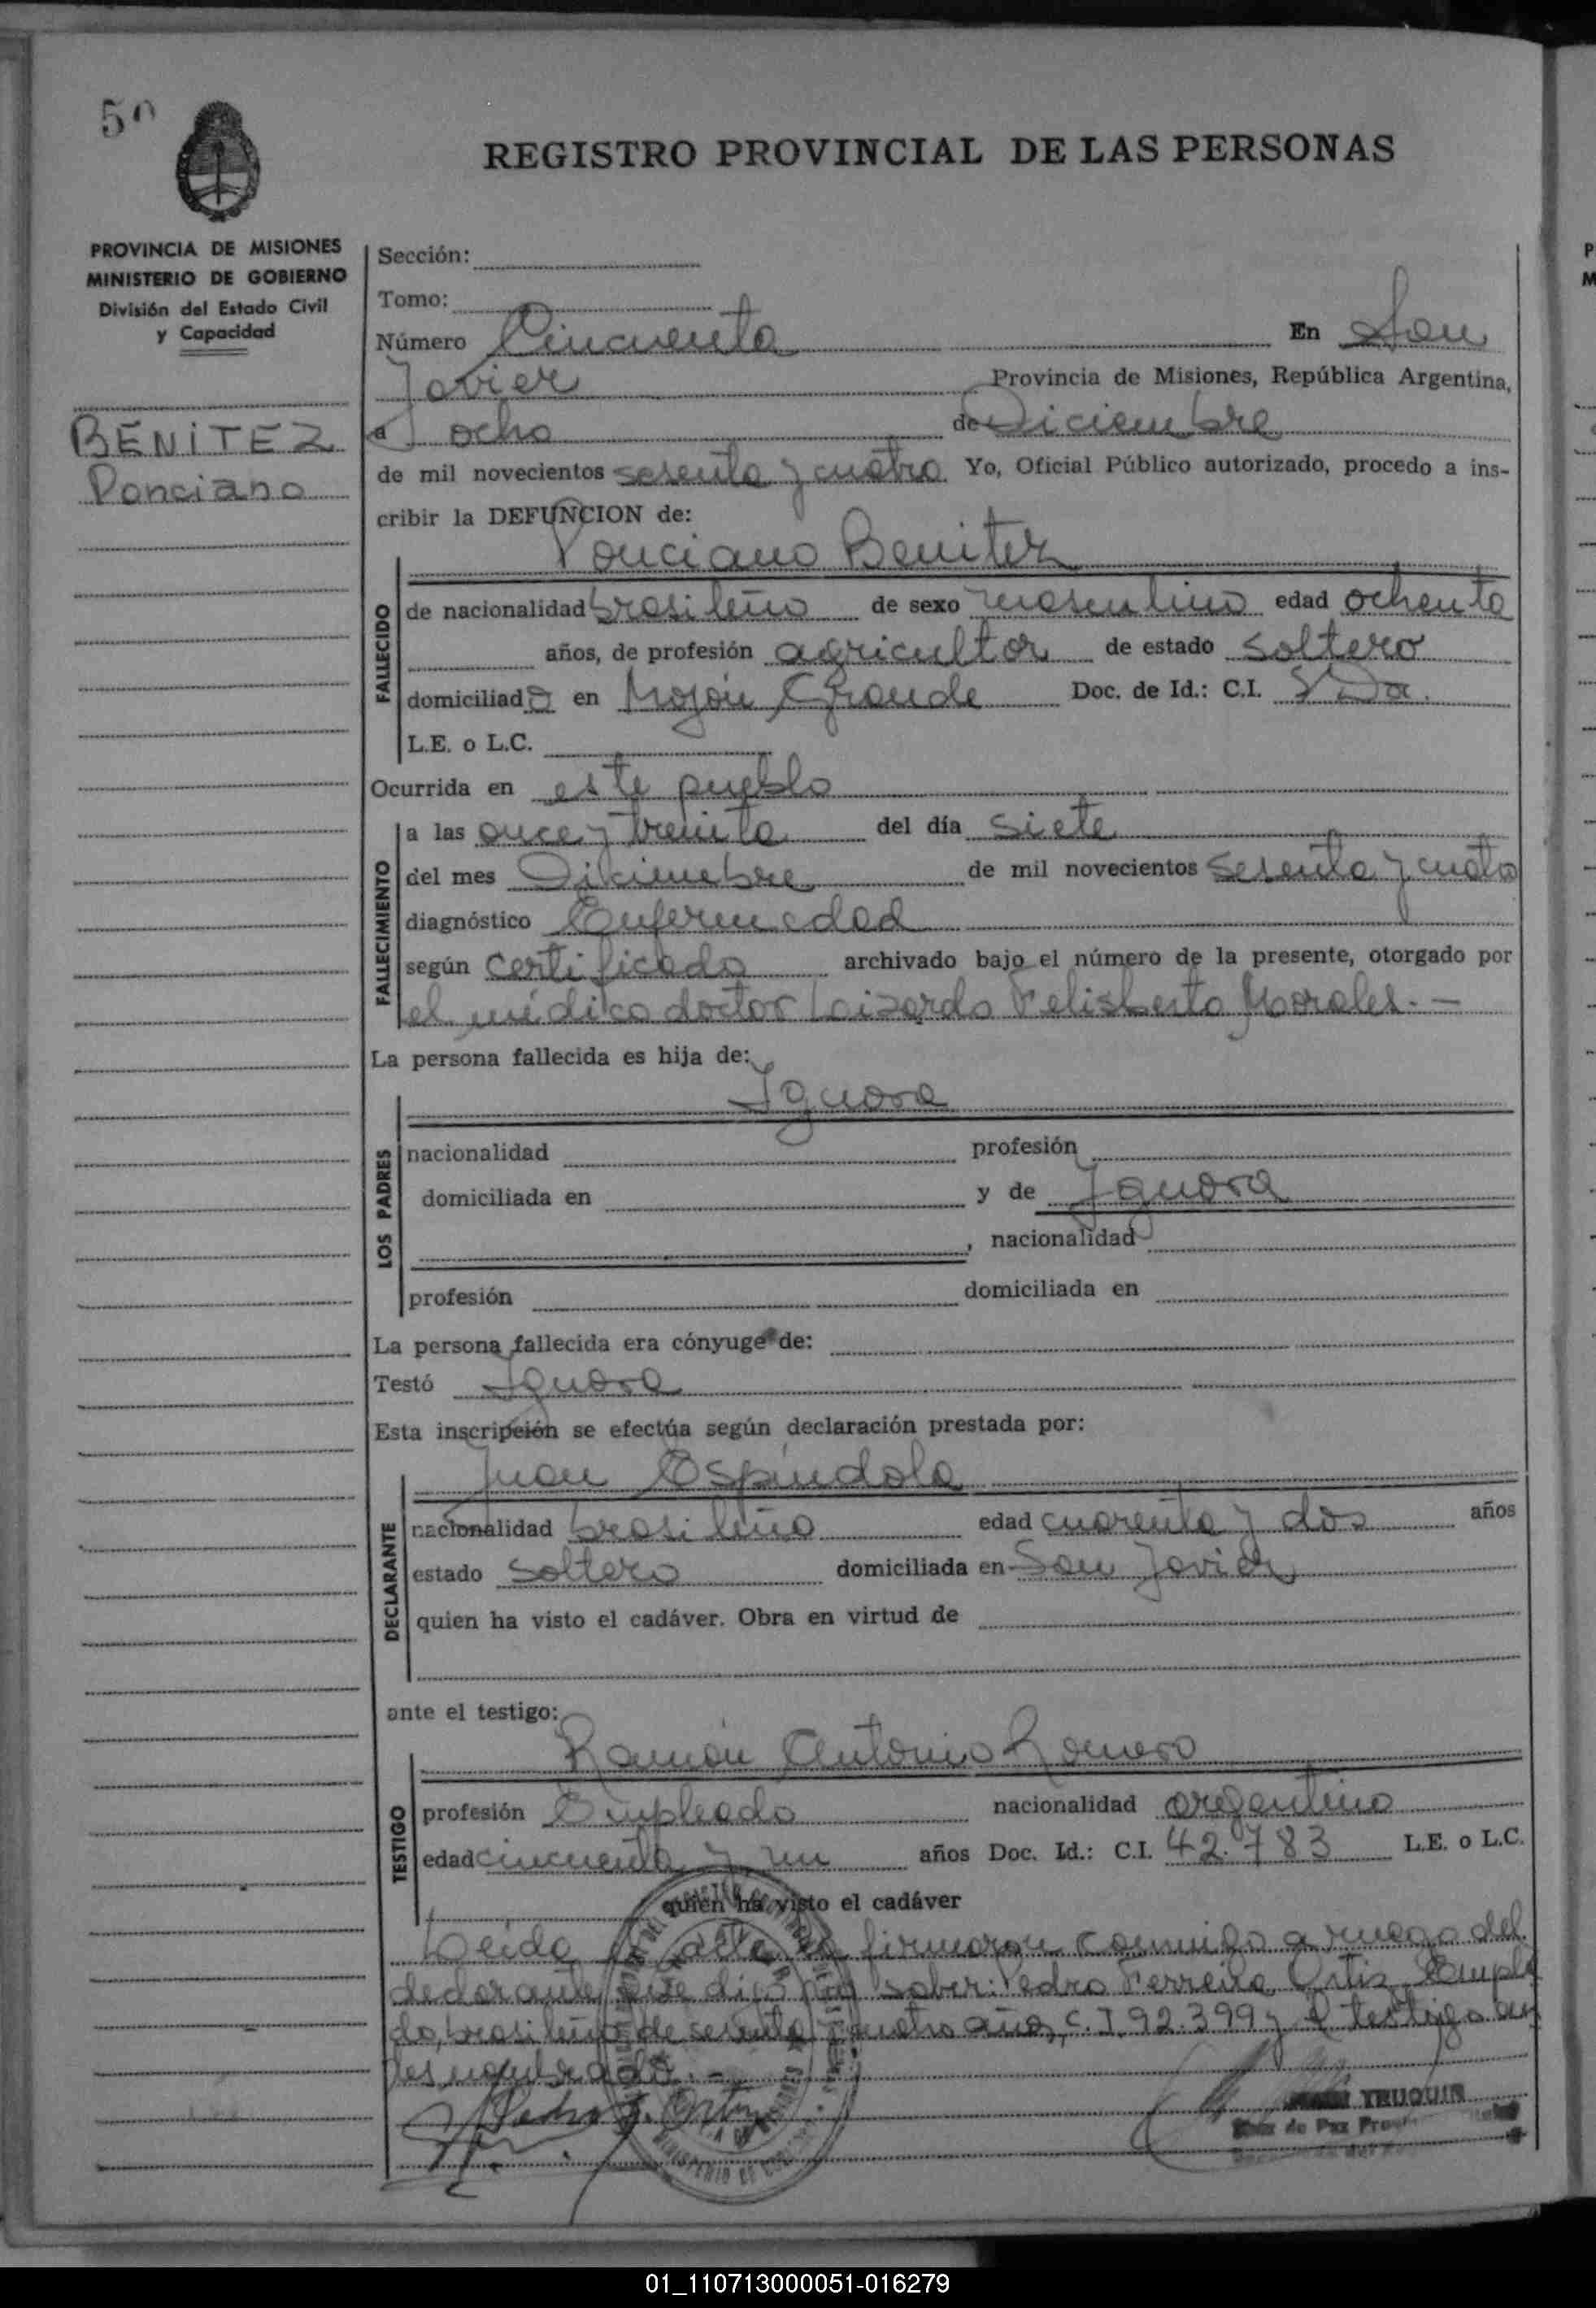 50
REGISTRO PROVINCIAL DE LAS PERSONAS
PROVINCIA DE MISIONES
MINISTERIO DE GOBIERNO
División del Estado Civil
y Capacidad
BENITEZ
Ponciano
Sección:
Tomo:
Número Cincuenta En San
Javier Provincia de Misiones, República Argentina,
a ocho de Diciembre
de mil novecientos sesenta y cuatro Yo, Oficial Público autorizado, procedo a ins-
cribir la DEFUNCION de:
Ponciano Benitez
FALLECIDO
de nacionalidad brasileño de sexo masculino edad ochenta
años, de profesión agricultor de estado soltero
domiciliado en Mojón Grande Doc. de Id.: C.I.
L.E. o L.C.
Ocurrida en este pueblo
FALLECIMIENTO
a las once y treinta del día siete
del mes Diciembre de mil novecientos sesenta y cuatro
diagnóstico Enfermedad
según certificado archivado bajo el número de la presente, otorgado por
el médico doctor Felisberto Morales.-
La persona fallecida es hija de:
Ignora
LOS PADRES
nacionalidad profesión
domiciliada en y de Ignora
, nacionalidad
profesión domiciliada en
La persona fallecida era cónyuge de:
Testó Ignora
Esta inscripción se efectúa según declaración prestada por:
Juan Espíndola
DECLARANTE
nacionalidad brasileño edad cuarenta y dos años
estado soltero domiciliada en San Javier
quien ha visto el cadáver. Obra en virtud de
ante el testigo:
Ramón Antonio Romero
TESTIGO
profesión Empleado nacionalidad argentino
edad cincuenta y un años Doc. Id.: C.I. 42.783 L.E. o L.C.
quien ha visto el cadáver
Leída el acta la firmaron conmigo a ruego del
declarante que dijo no saber: Pedro Ferreira Ortiz, Emplea
do, brasileño, de sesenta y cuatro años, C.I. 92.399 y el testigo an
tes nombrado.-
Pedro F. Ortiz
TRUQUIN
de Paz
01_110713000051-016279